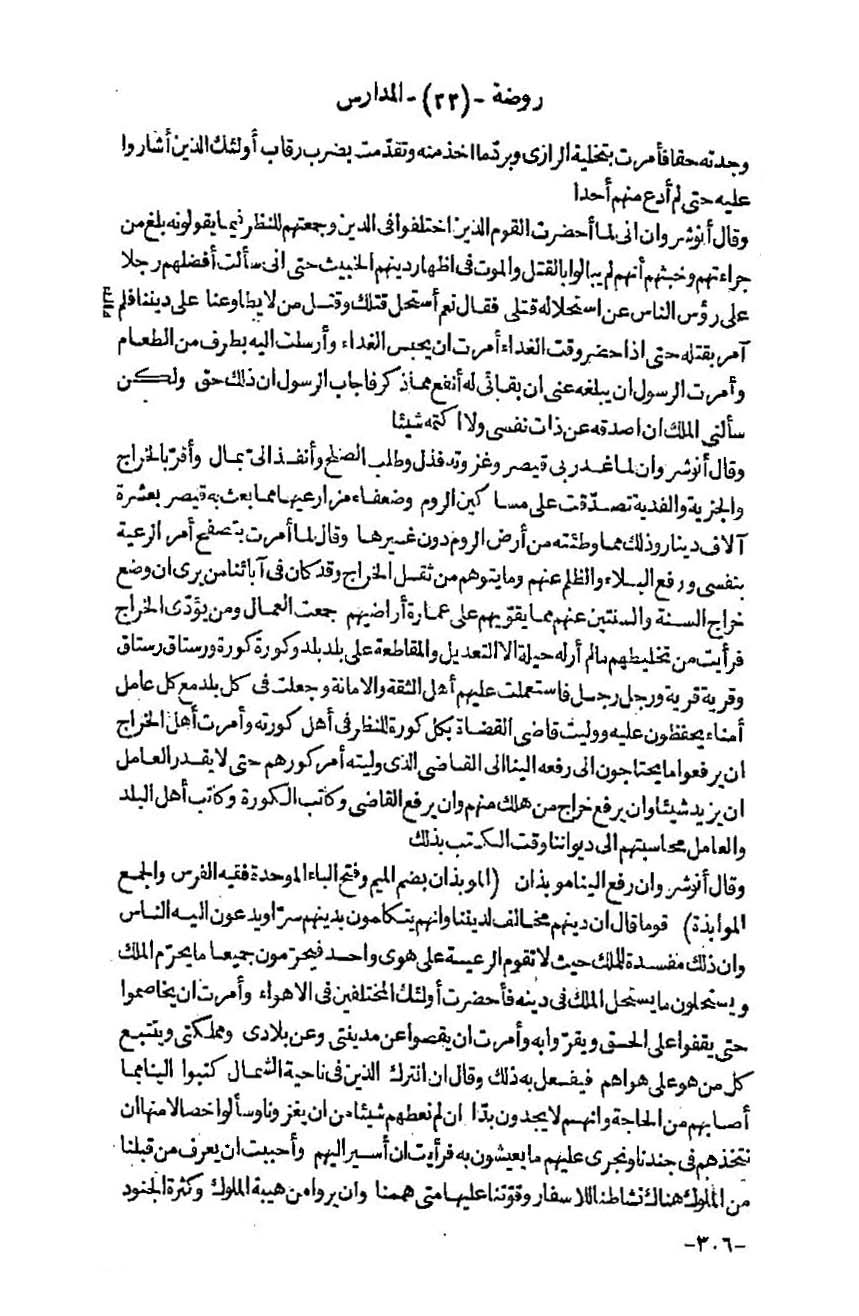 روضة -(٢٢)- المدارس
وجدته حقا فأمرت بتخلية الرازى وبردّ ما اخذ منه وتقدّمت بضرب رقاب أولئك الذين أشاروا
عليه حتى لم أدع منهم أحدا
وقال أنوشر وان انى لما أحضرت القوم الذين اختلفوا فى الدين وجمعتهم للنظر فيما يقولونه بلغ من
جراءتهم وخبثهم أنهم لم يبالوا بالقتل والموت فى اظهار دينهم الخبيث حتى انى سألت أفضلهم رجلا
على رؤس الناس عن استحلاله قتلى فقال نعم أستحل قتلك وقتل من لا يطاوعنا على ديننا فلم
آمر بقتله حتى اذا حضر وقت الغداء أمرت ان يحبس الغداء وأرسلت اليه بطرف من الطعام
وأمرت الرسول ان يبلغه عنى ان بقائى له أنفع مما ذكر فاجاب الرسول ان ذلك حق ولكن
سألنى الملك ان اصدقه عن ذات نفسى ولا اكتمه شيئا
وقال أنوشر وان لما غدر بى قيصر وغزوته فذل وطلب الصلح وأنفذ الىّ بمال وأقرّ بالخراج
والجزية والفدية تصدّقت على مساكين الروم وضعفاء مزارعيها مما بعث به قيصر بعشرة
آلاف دينار وذلك مما وطئته من أرض الروم دون غيرها وقال لما أمرت بتصفح أمر الرعية
بنفسى ورفع البلاء والظلم عنهم وما يتوهم من ثقل الخراج وقد كان فى آبائنا من يرى ان وضع
خراج السنة والسنتين عنهم مما يقوّيهم على عمارة أراضيهم جمعت العمال ومن يؤدّى الخراج
فرأيت من تخليطهم مالم أر له حيلة الا التعديل والمقاطعة على بلد بلد وكورة كورة ورستاق رستاق
وقرية قرية ورجل رجل فاستعملت عليهم أهل الثقة والامانة وجعلت فى كل بلد مع كل عامل
أمناء يحفظون عليه ووليت قاضى القضاة بكل كورة للنظر فى أهل كورته وأمرت أهل الخراج
ان يرفعوا ما يحتاجون الى رفعه الينا الى القاضى الذى وليته أمر كورهم حتى لا يقدر العامل
ان يزيد شيئا وان يرفع خراج من هلك منهم وان يرفع القاضى وكاتب الكورة وكاتب أهل البلد
والعامل محاسبتهم الى ديواننا وقت الكتب بذلك
وقال أنوشر وان رفع الينا موبذان (الموبذان بضم الميم وفتح الباء الموحدة فقيه الفرس والجمع
الموابذة) قوما قال ان دينهم مخالف لديننا وانهم يتكلمون بدينهم سرّا ويدعون اليه الناس
وان ذلك مفسدة للملك حيث لا تقوم الرعيسة على هوى واحد فيحرّمون جميعا ما يحرّم الملك
ويستحلون ما يستحل الملك فى دينه فأحضرت أولئك المختلفين فى الاهواء وأمرت ان يخاصموا
حتى يقفوا على الحق ويقرّوا به وأمرت ان يقصوا عن مدينتى وعن بلادى ومملكتى ويتتبع
كل من هو على هواهم فيفعل به ذلك وقال ان الترك الذين فى ناحية الشمال كتبوا الينا بما
أصابهم من الحاجة وانهم لا يجدون بدّا ان لم نعطهم شيئا من ان يغزونا وسألوا خصالا منها ان
نتخذهم فى جندنا ونجرى عليهم ما يعيشون به فرأيت ان أسير اليهم وأحببت ان يعرف من قبلنا
من الملوك هناك نشاطنا للاسفار وقوّتنا عليها متى هممنا وان يروا من هيبة الملوك وكثرة الجنود
-٣٠٦-